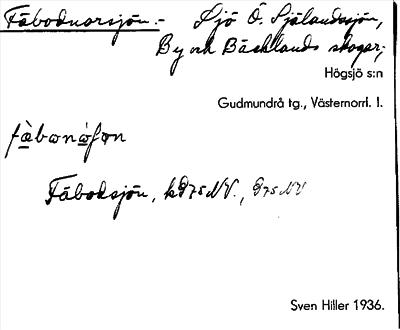 Fäbodnarsjön.- Sjö Ö. Själandssjön,
By och Bäcklands skogar;
Högsjö s:n
Gudmundrå tg., Västernorrl. l.
fàbonáfon
Fäbodsjön, k975NV., 975NV
Sven Hiller 1936.